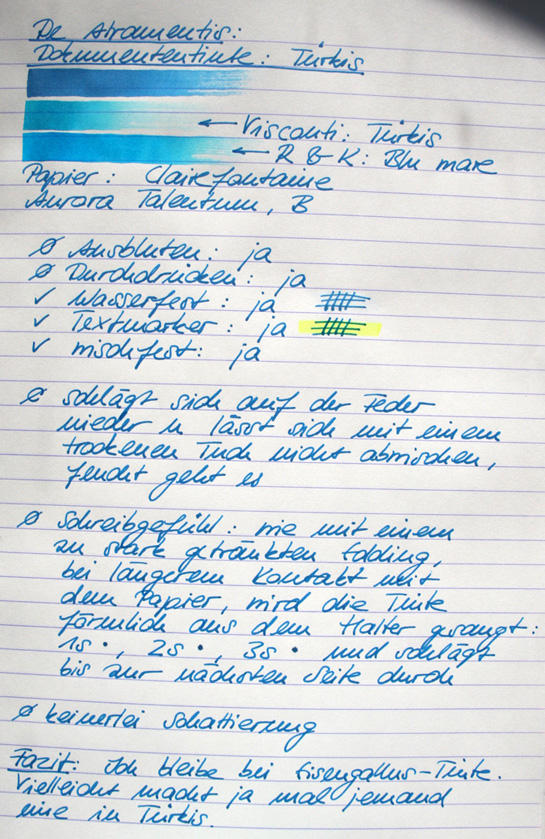 De Atramentis:
Dokumententinte: Türkis
← Visconti: Türkis
← R & K: Blu mare
Papier: Clairefontaine
Aurora Talentum, B
ø Ausbluten: ja
ø Durchdrücken: ja
✓ Wasserfest: ja
✓ Textmarker: ja
✓ mischfest: ja
ø schlägt sich auf der Feder
nieder u lässt sich mit einem
trockenen Tuch nicht abwischen,
feucht geht es
ø Schreibgefühl: wie mit einem
zu stark getränkten Edding,
bei längerem Kontakt mit
dem Papier, wird die Tinte
förmlich aus dem Halter gesaugt:
1s •, 2s •, 3s • und schlägt
bis zur nächsten Seite durch
ø keinerlei Schattierung
Fazit: Ich bleibe bei Eisengallus-Tinte.
Vielleicht macht ja mal jemand
eine in Türkis.